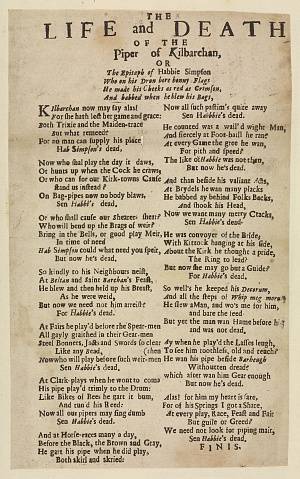 THE
LIFE and DEATH
OF THE
Piper of Kilbarchan,
OR
The Epitaph of Habbie Simpson
Who on his Dron bore bonny Flags
He made his Cheeks as red as Crimson,
And babbed when he blew his Bags,
Kilbarchan now may say alas!
For she hath lost her game and grace:
Both Trixie and the Maiden-trace
But what remeed?
For no man can supply his place
Hab Simpson's dead.
Now who shal play the day it daws,
Or hunts up when the Cock he craws,
Or who can for our Kirk-towns Cause
stand us instead?
On Bag-pipes now no body blaws,
Sen Habbie's dead.
Or who shall cause our Shearers shear?
Who will bend up the Brags of weir?
Bring in the Bells, or good play Meir,
In time of need
Hab Simpson could what need you speir,
But now he's dead.
So kindly to his Neighbours neist,
At Beltan and Saint Barchan's Feast,
He blew and then held up his Breast,
As he were weid,
But now we need not him arrest
For Habbie's dead.
At Fairs he play'd before the Spear-men
All gayly graithed in their Gear-men
Steel Bonnets, Jacks and Swords so clear
Like any Bead, (then
Now who will play before such weir-men
Sen Habbie's dead.
At Clark-plays when he wont to come
His pipe play'd trimly to the Drum:
Like Bikes of Bees he gart it bum,
And tun'd his Reed:
Now all our pipers may sing dumb
Sen Habbie's dead.
And at Horse-races many a day,
Before the Black, the Brown and Gray,
He gart his pipe when he did play,
Both skirl and skried:
Now all such pastim's quite away
Sen Habbie's dead.
He counted was a wall'd wight Man,
And fiercely at Foot-ball he ran:
At every Game the gree he wan,
For pith and speed?
The like of Habbie was not than,
But now he's dead.
And than beside his valiant Acts,
At Brydels he wan many placks
He babbed ay behind Folks Backs,
And shook his Head,
Now we want many merry Cracks,
Sen Habbie's dead.
He was convoyer of the Bride,
With Kittock hanging at his side,
About the Kirk he thought a pride,
The Ring to lead?
But now she may go but a Guide?
For Habbie's dead.
So well's he keeped his Decorum,
And all the steps of Whip meg morum
He slew a Man, and wo's me for him,
and bare the feed
But yet the man wan Hame before him
and was not dead,
Ay when he play'd the Lasses leugh,
To see him toothless, old and teuch
He wan his pipe beside Barheugh
Withoutten dread?
which after wan him Gear enough
But now he's dead.
Alas! for him my heart is sare,
For of his Springs I got a Share,
At every play, Race, Feast and Fair
But guile or Greed?
We need not look for piping mair,
Sen Habbie's dead.
FINIS.